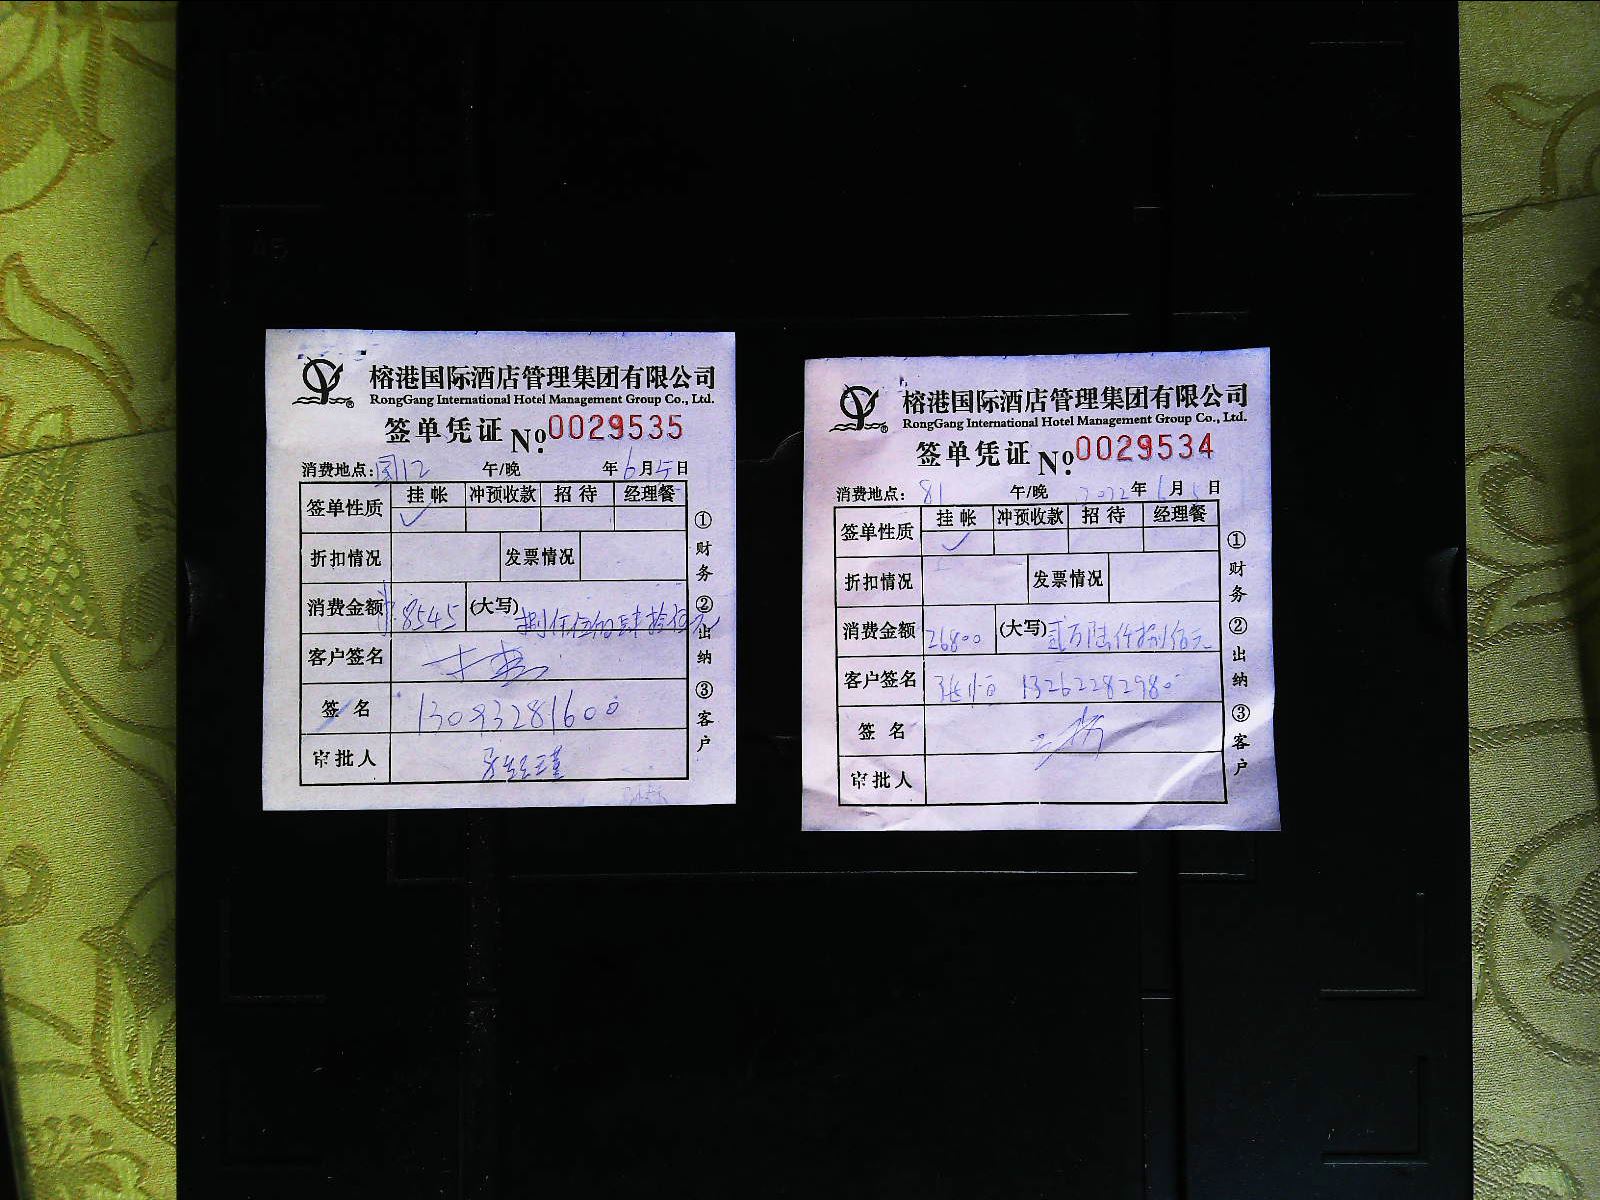 榕港国际酒店管理集团有限公司
RongGang International Hotel Management Group Co., Ltd.
签单凭证 No. 0029535
消费地点: 国12 午/晚 年 6月5日
签单性质 挂帐 冲预收款 招待 经理餐
✓
折扣情况 发票情况
消费金额 8545 (大写) 捌仟伍佰肆拾伍元
客户签名
签名 13093281600
审批人
①财务 ②出纳 ③客户
榕港国际酒店管理集团有限公司
RongGang International Hotel Management Group Co., Ltd.
签单凭证 No. 0029534
消费地点: 81 午/晚 2022年6月5日
签单性质 挂帐 冲预收款 招待 经理餐
✓
折扣情况 发票情况
消费金额 26800 (大写) 贰万陆仟捌佰元
客户签名 张恒 13262282980
签名
审批人
①财务 ②出纳 ③客户